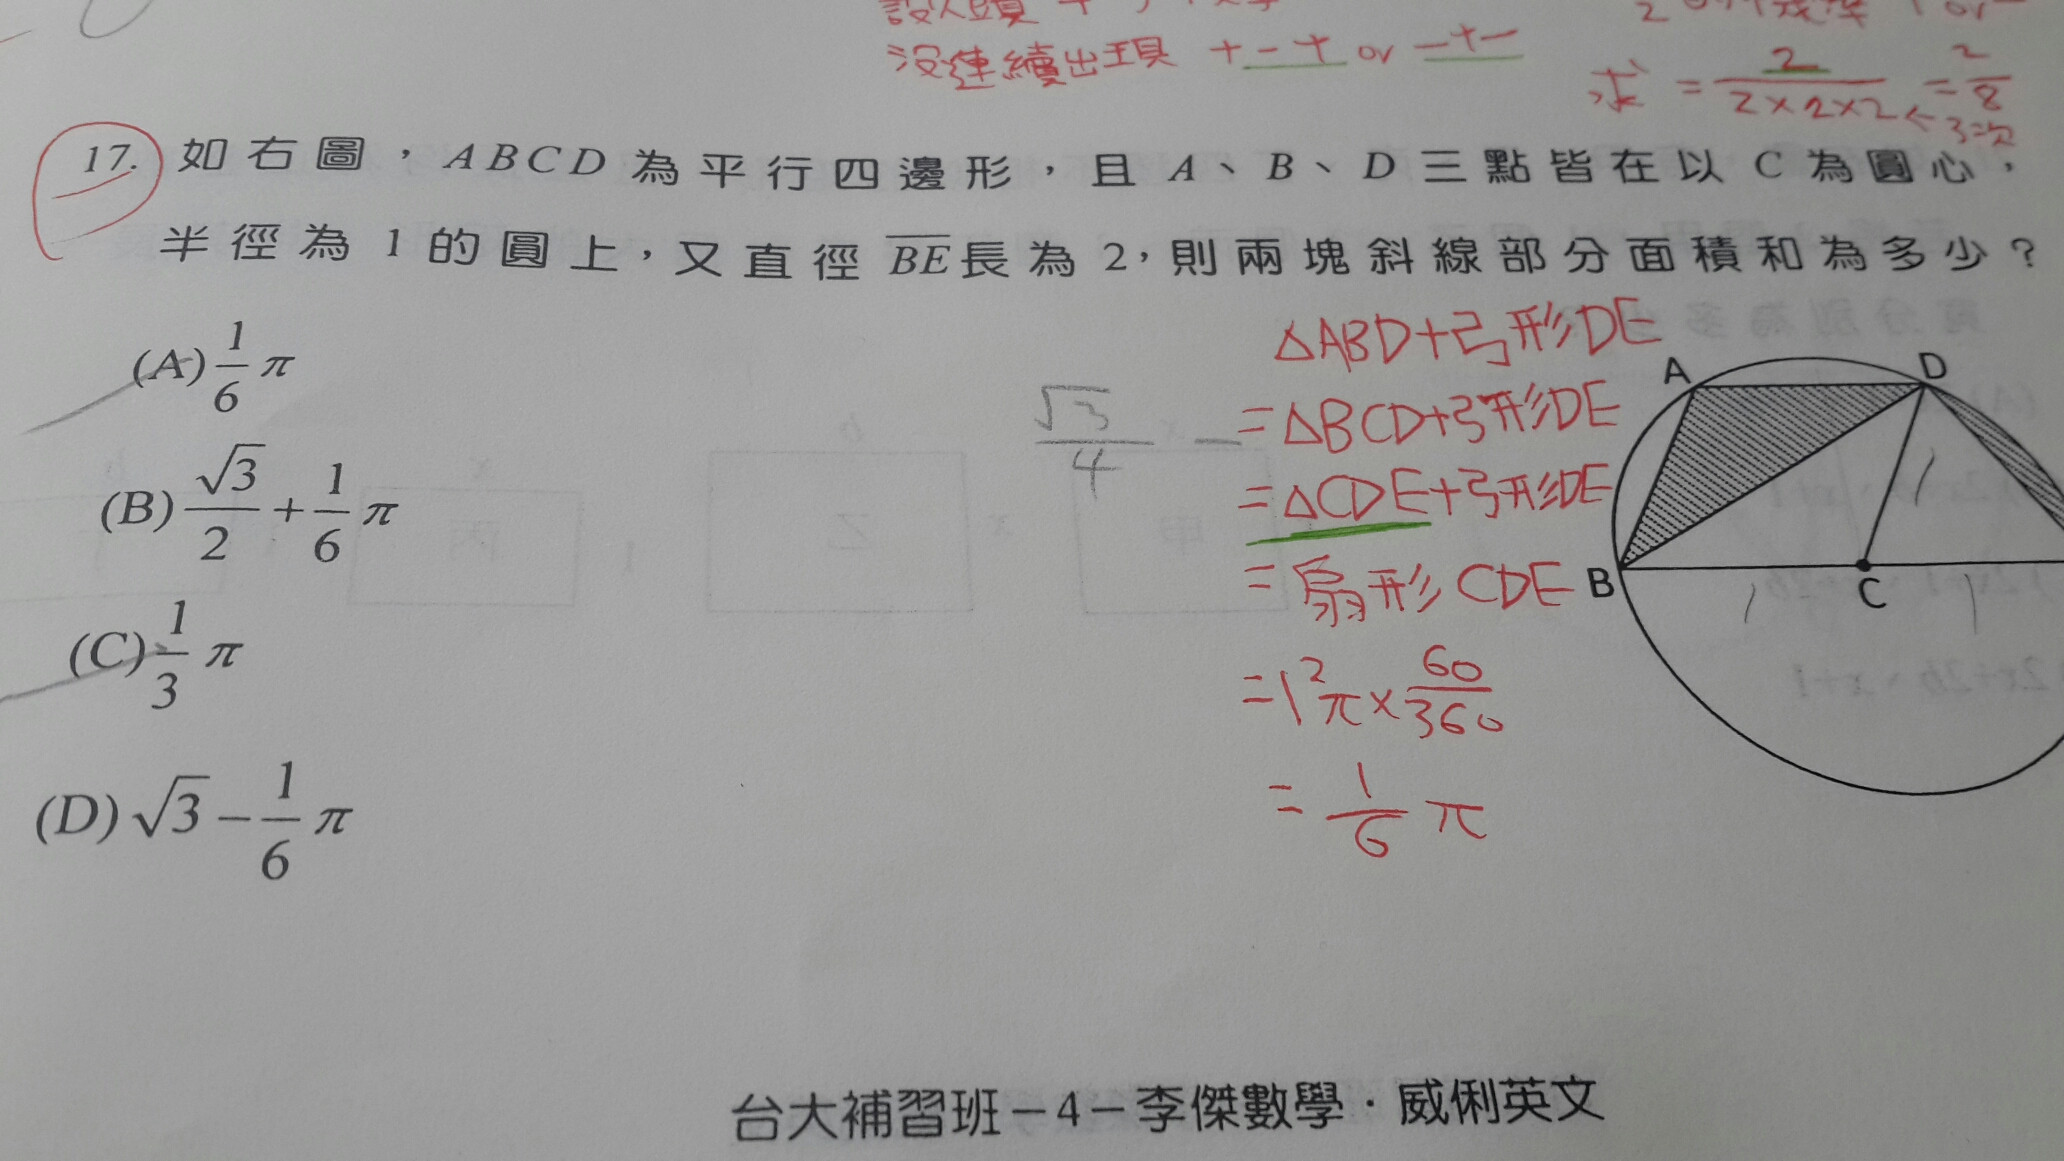 沒連續出現 +-+ or -+-
求 = 2/(2×2×2) = 2/8
←3次
17. 如右圖，ABCD為平行四邊形，且A、B、D三點皆在以C為圓心，
半徑為1的圓上，又直徑BE長為2，則兩塊斜線部分面積和為多少？
(A) 1/6 π
(B) √3/2 + 1/6 π
(C) 1/3 π
(D) √3 − 1/6 π
√3/4 −
△ABD+弓形DE
=△BCD+弓形DE
=△CDE+弓形DE
=扇形CDE
=1²π×60/360
=1/6 π
A
D
B
C
1
1
1
台大補習班－4－李傑數學．威俐英文